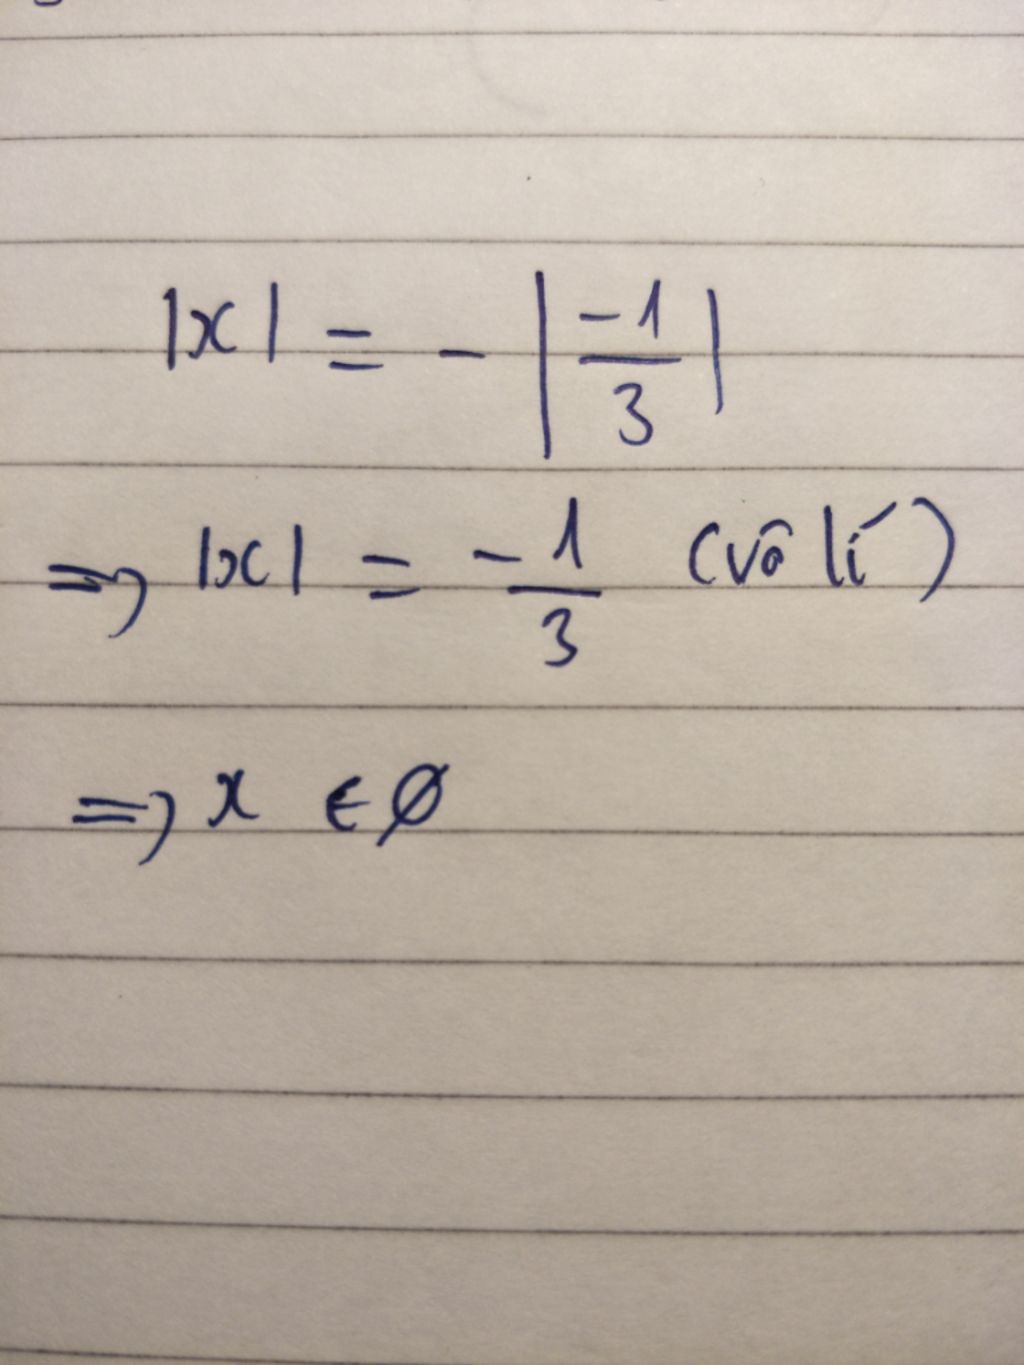 |x| = - |-1/3|
=> |x| = -1/3 (vô lí)
=> x ∈ ∅